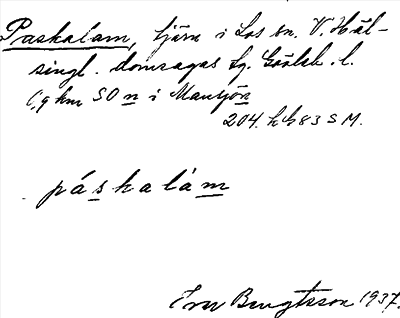 Paskalam, tjärn i Los sn. V. Häl-
singl. domsagas tg. Gävleb. l.
0,9 km SO n i Mansjön
204. h b 83 S M.
páskalám
Bengtsson 1937.